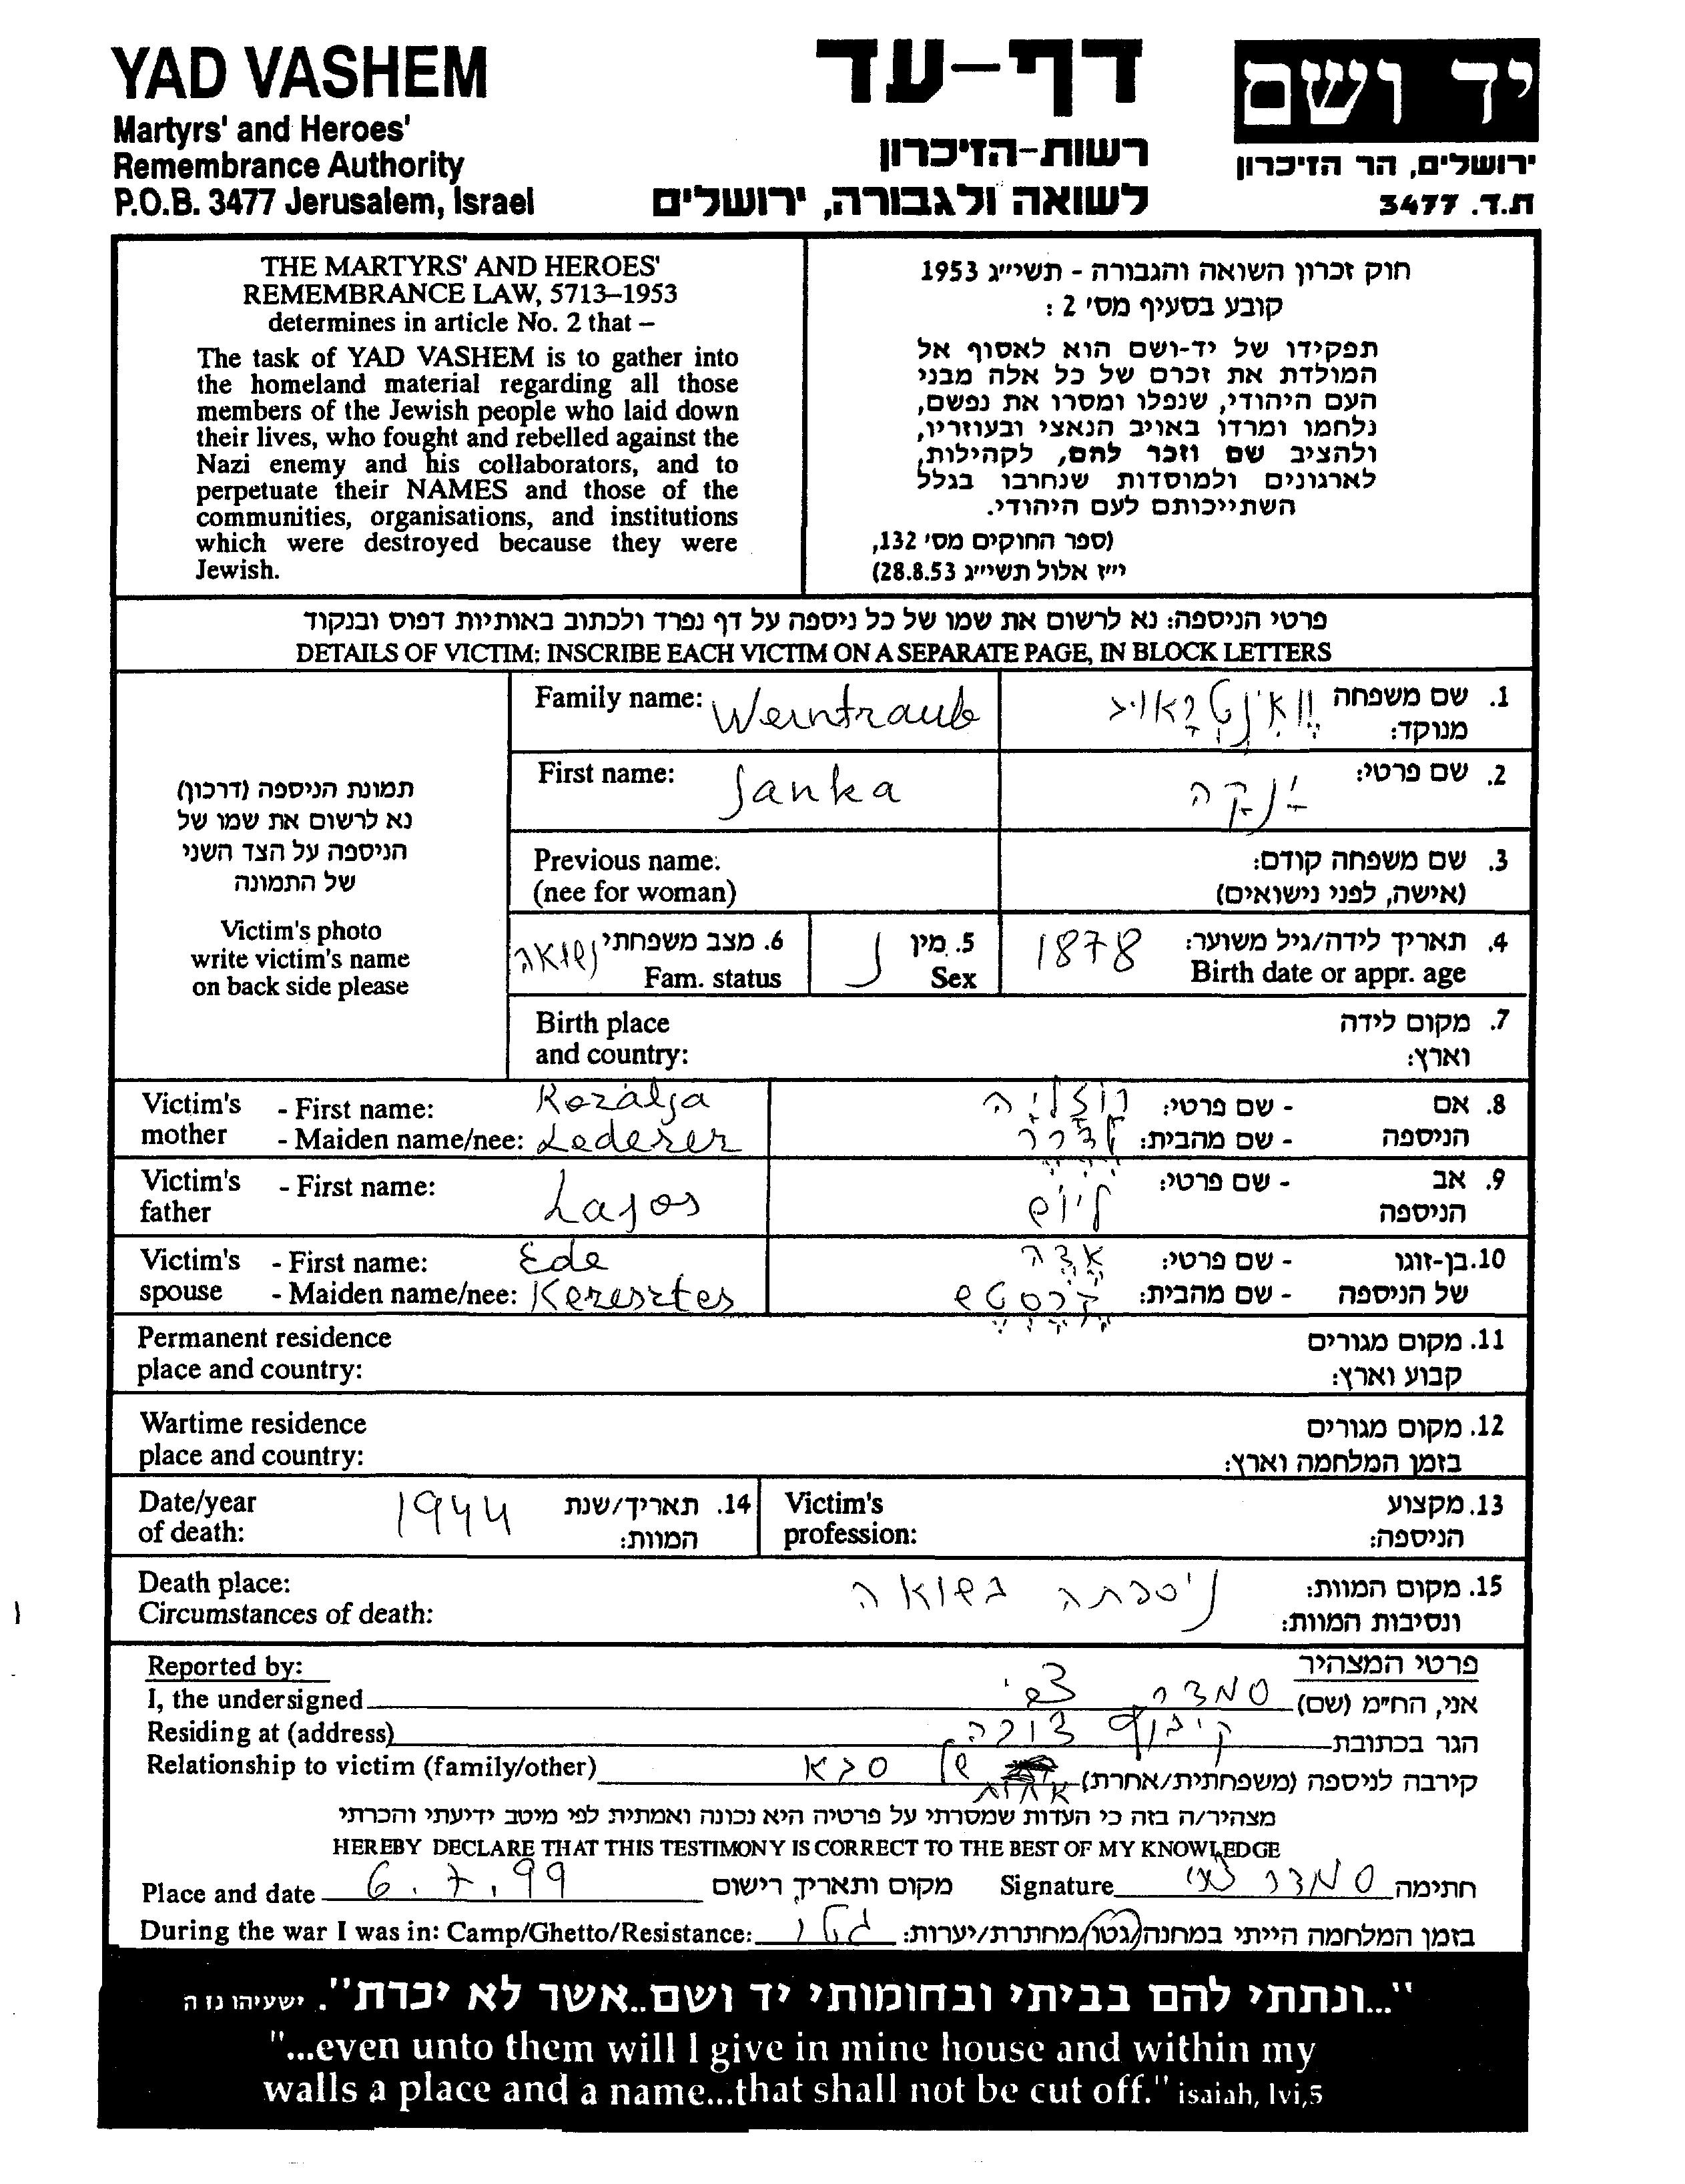 YAD VASHEM
Martyrs' and Heroes'
Remembrance Authority
P.O.B. 3477 Jerusalem, Israel
דף-עד
רשות-הזיכרון
לשואה ולגבורה, ירושלים
יד ושם
ירושלים, הר הזיכרון
ת.ד. 3477
THE MARTYRS' AND HEROES'
REMEMBRANCE LAW, 5713–1953
determines in article No. 2 that –
The task of YAD VASHEM is to gather into
the homeland material regarding all those
members of the Jewish people who laid down
their lives, who fought and rebelled against the
Nazi enemy and his collaborators, and to
perpetuate their NAMES and those of the
communities, organisations, and institutions
which were destroyed because they were
Jewish.
חוק זכרון השואה והגבורה - תשי״ג 1953
קובע בסעיף מס' 2 :
תפקידו של יד-ושם הוא לאסוף אל
המולדת את זכרם של כל אלה מבני
העם היהודי, שנפלו ומסרו את נפשם,
נלחמו ומרדו באויב הנאצי ובעוזריו,
ולהציב שם וזכר להם, לקהילות,
לארגונים ולמוסדות שנחרבו בגלל
השתייכותם לעם היהודי.
(ספר החוקים מס' 132,
י״ז אלול תשי״ג 28.8.53)
פרטי הניספה: נא לרשום את שמו של כל ניספה על דף נפרד ולכתוב באותיות דפוס ובנקוד
DETAILS OF VICTIM: INSCRIBE EACH VICTIM ON A SEPARATE PAGE, IN BLOCK LETTERS
תמונת הניספה (דרכון)
נא לרשום את שמו של
הניספה על הצד השני
של התמונה
Victim's photo
write victim's name
on back side please
Family name: Weintraub
1. שם משפחה
מנוקד: וַוַאִינְטְרָאוּב
First name: Janka
2. שם פרטי: ינקה
Previous name:
(nee for woman)
3. שם משפחה קודם:
(אישה, לפני נישואים)
4. תאריך לידה/גיל משוער: 1878
Birth date or appr. age
5. מין נ
Sex
6. מצב משפחתי נשואה
Fam. status
Birth place
and country:
7. מקום לידה
וארץ:
Victim's - First name: Rozálja
mother - Maiden name/nee: Lederer
8. אם - שם פרטי: רוזליה
הניספה - שם מהבית: לדרר
Victim's - First name: Lajos
father
9. אב - שם פרטי: ליוש
הניספה
Victim's - First name: Ede
spouse - Maiden name/nee: Keresztes
10. בן-זוגו - שם פרטי: אדה
של הניספה - שם מהבית: קרסטש
Permanent residence
place and country:
11. מקום מגורים
קבוע וארץ:
Wartime residence
place and country:
12. מקום מגורים
בזמן המלחמה וארץ:
Date/year
of death: 1944
14. תאריך/שנת
המוות:
Victim's
profession:
13. מקצוע
הניספה:
Death place:
Circumstances of death:
15. מקום המוות: ניספתה בשואה
ונסיבות המוות:
Reported by:
פרטי המצהיר
I, the undersigned
אני, הח״מ (שם) סמדר צבי
Residing at (address)
הגר בכתובת קיבוץ צורה
Relationship to victim (family/other)
קירבה לניספה (משפחתית/אחרת) אחות של סבא
מצהיר/ה בזה כי העדות שמסרתי על פרטיה היא נכונה ואמתית לפי מיטב ידיעתי והכרתי
HEREBY DECLARE THAT THIS TESTIMONY IS CORRECT TO THE BEST OF MY KNOWLEDGE
Place and date 6.7.99 מקום ותאריך רישום
Signature סמדר צבי חתימה
During the war I was in: Camp/Ghetto/Resistance:
בזמן המלחמה הייתי במחנה/גטו/מחתרת/יערות: גטו
"...ונתתי להם בביתי ובחומותי יד ושם..אשר לא יכרת". ישעיהו נז ה
"...even unto them will I give in mine house and within my
walls a place and a name...that shall not be cut off." isaiah, lvi,5